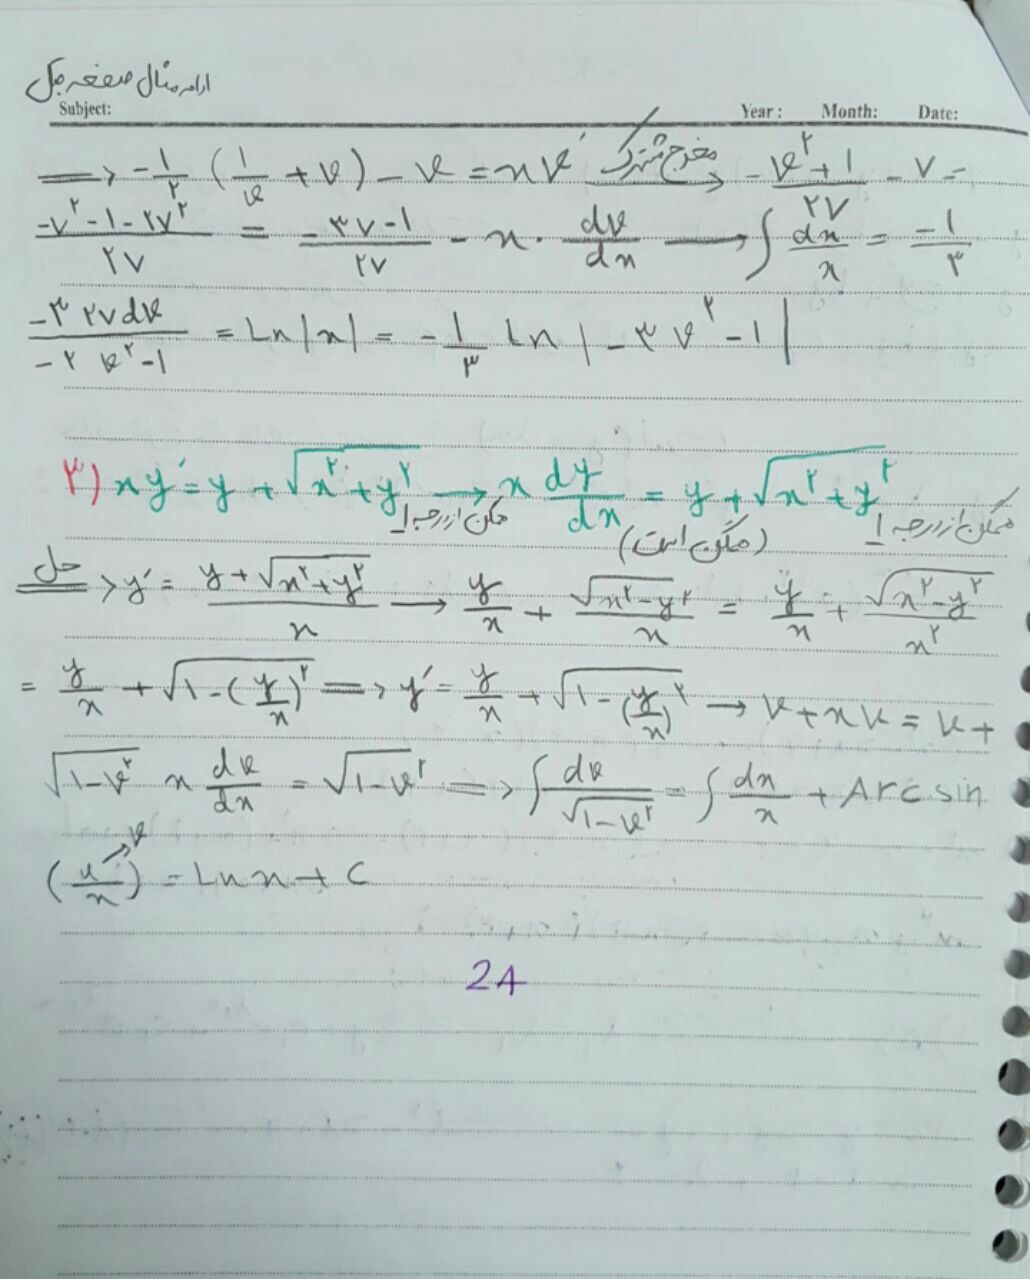 ادامه مثال صفحه قبل
Subject: Year : Month: Date:
⟹ -۱/۲ (۱/v + v) - v = xv′ مخرج مشترک → - v²+۱/۲v - v =
-v²-۱-۲v²/۲v = -۳v-۱/۲v = x · dv/dx → ∫ dx/x = -۱/۳
-۳ ۲vdv/-۲ v²-۱ = Ln|x| = -۱/۳ Ln |-۳v²-۱|
۳) xy′ = y + √x²+y² → x dy/dx = y + √x²+y²
همگن از درجه ۱ (همگن است) همگن از درجه ۱
حل ⟹ y′ = y+√x²+y²/x → y/x + √x²-y²/x = y/x + √x²-y²/x²
= y/x + √۱-(y/x)² ⟹ y′ = y/x + √۱-(y/x)² → v+xv = v+
√۱-v² x dv/dx = √۱-v² ⟹ ∫ dv/√۱-v² = ∫ dx/x + Arcsin
(y/x)→v = Lnx + C
2A